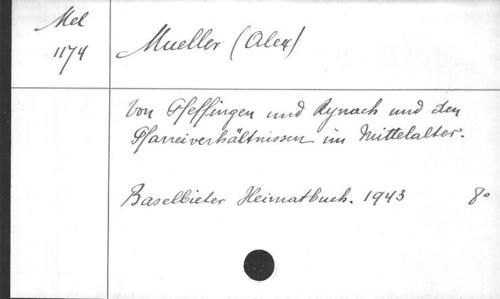 Mel
1174
Mueller (Alex)
Von Pfeffingen und Rynach und den
Pfarreiverhältnissen im Mittelalter.
Baselbieter Heimatbuch. 1943 8°